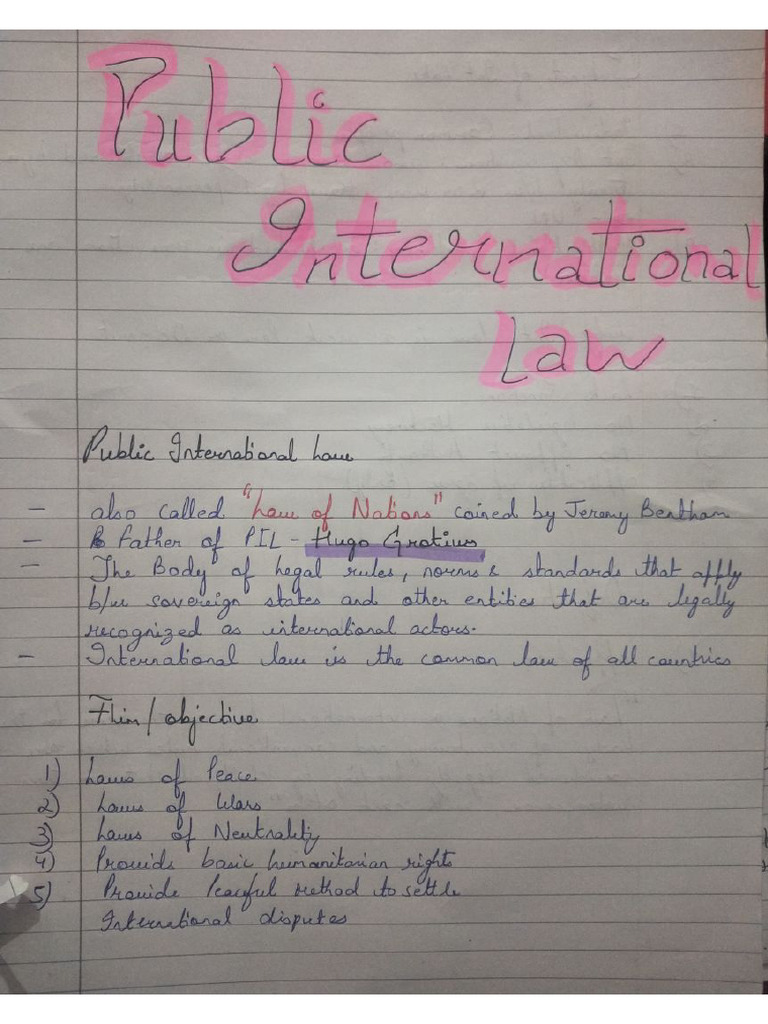 Public
International
Law
Public International Law
- also called "Law of Nations" coined by Jeremy Bentham
- Father of PIL - Hugo Grotius
- The Body of Legal rules, norms & standards that apply
b/w sovereign states and other entities that are legally
recognized as international actors.
- International law is the common law of all countries
Aim/objective
1) Laws of Peace
2) Laws of Wars
3) Laws of Neutrality
4) Provide basic humanitarian rights
5) Provide Peaceful method to settle
International disputes